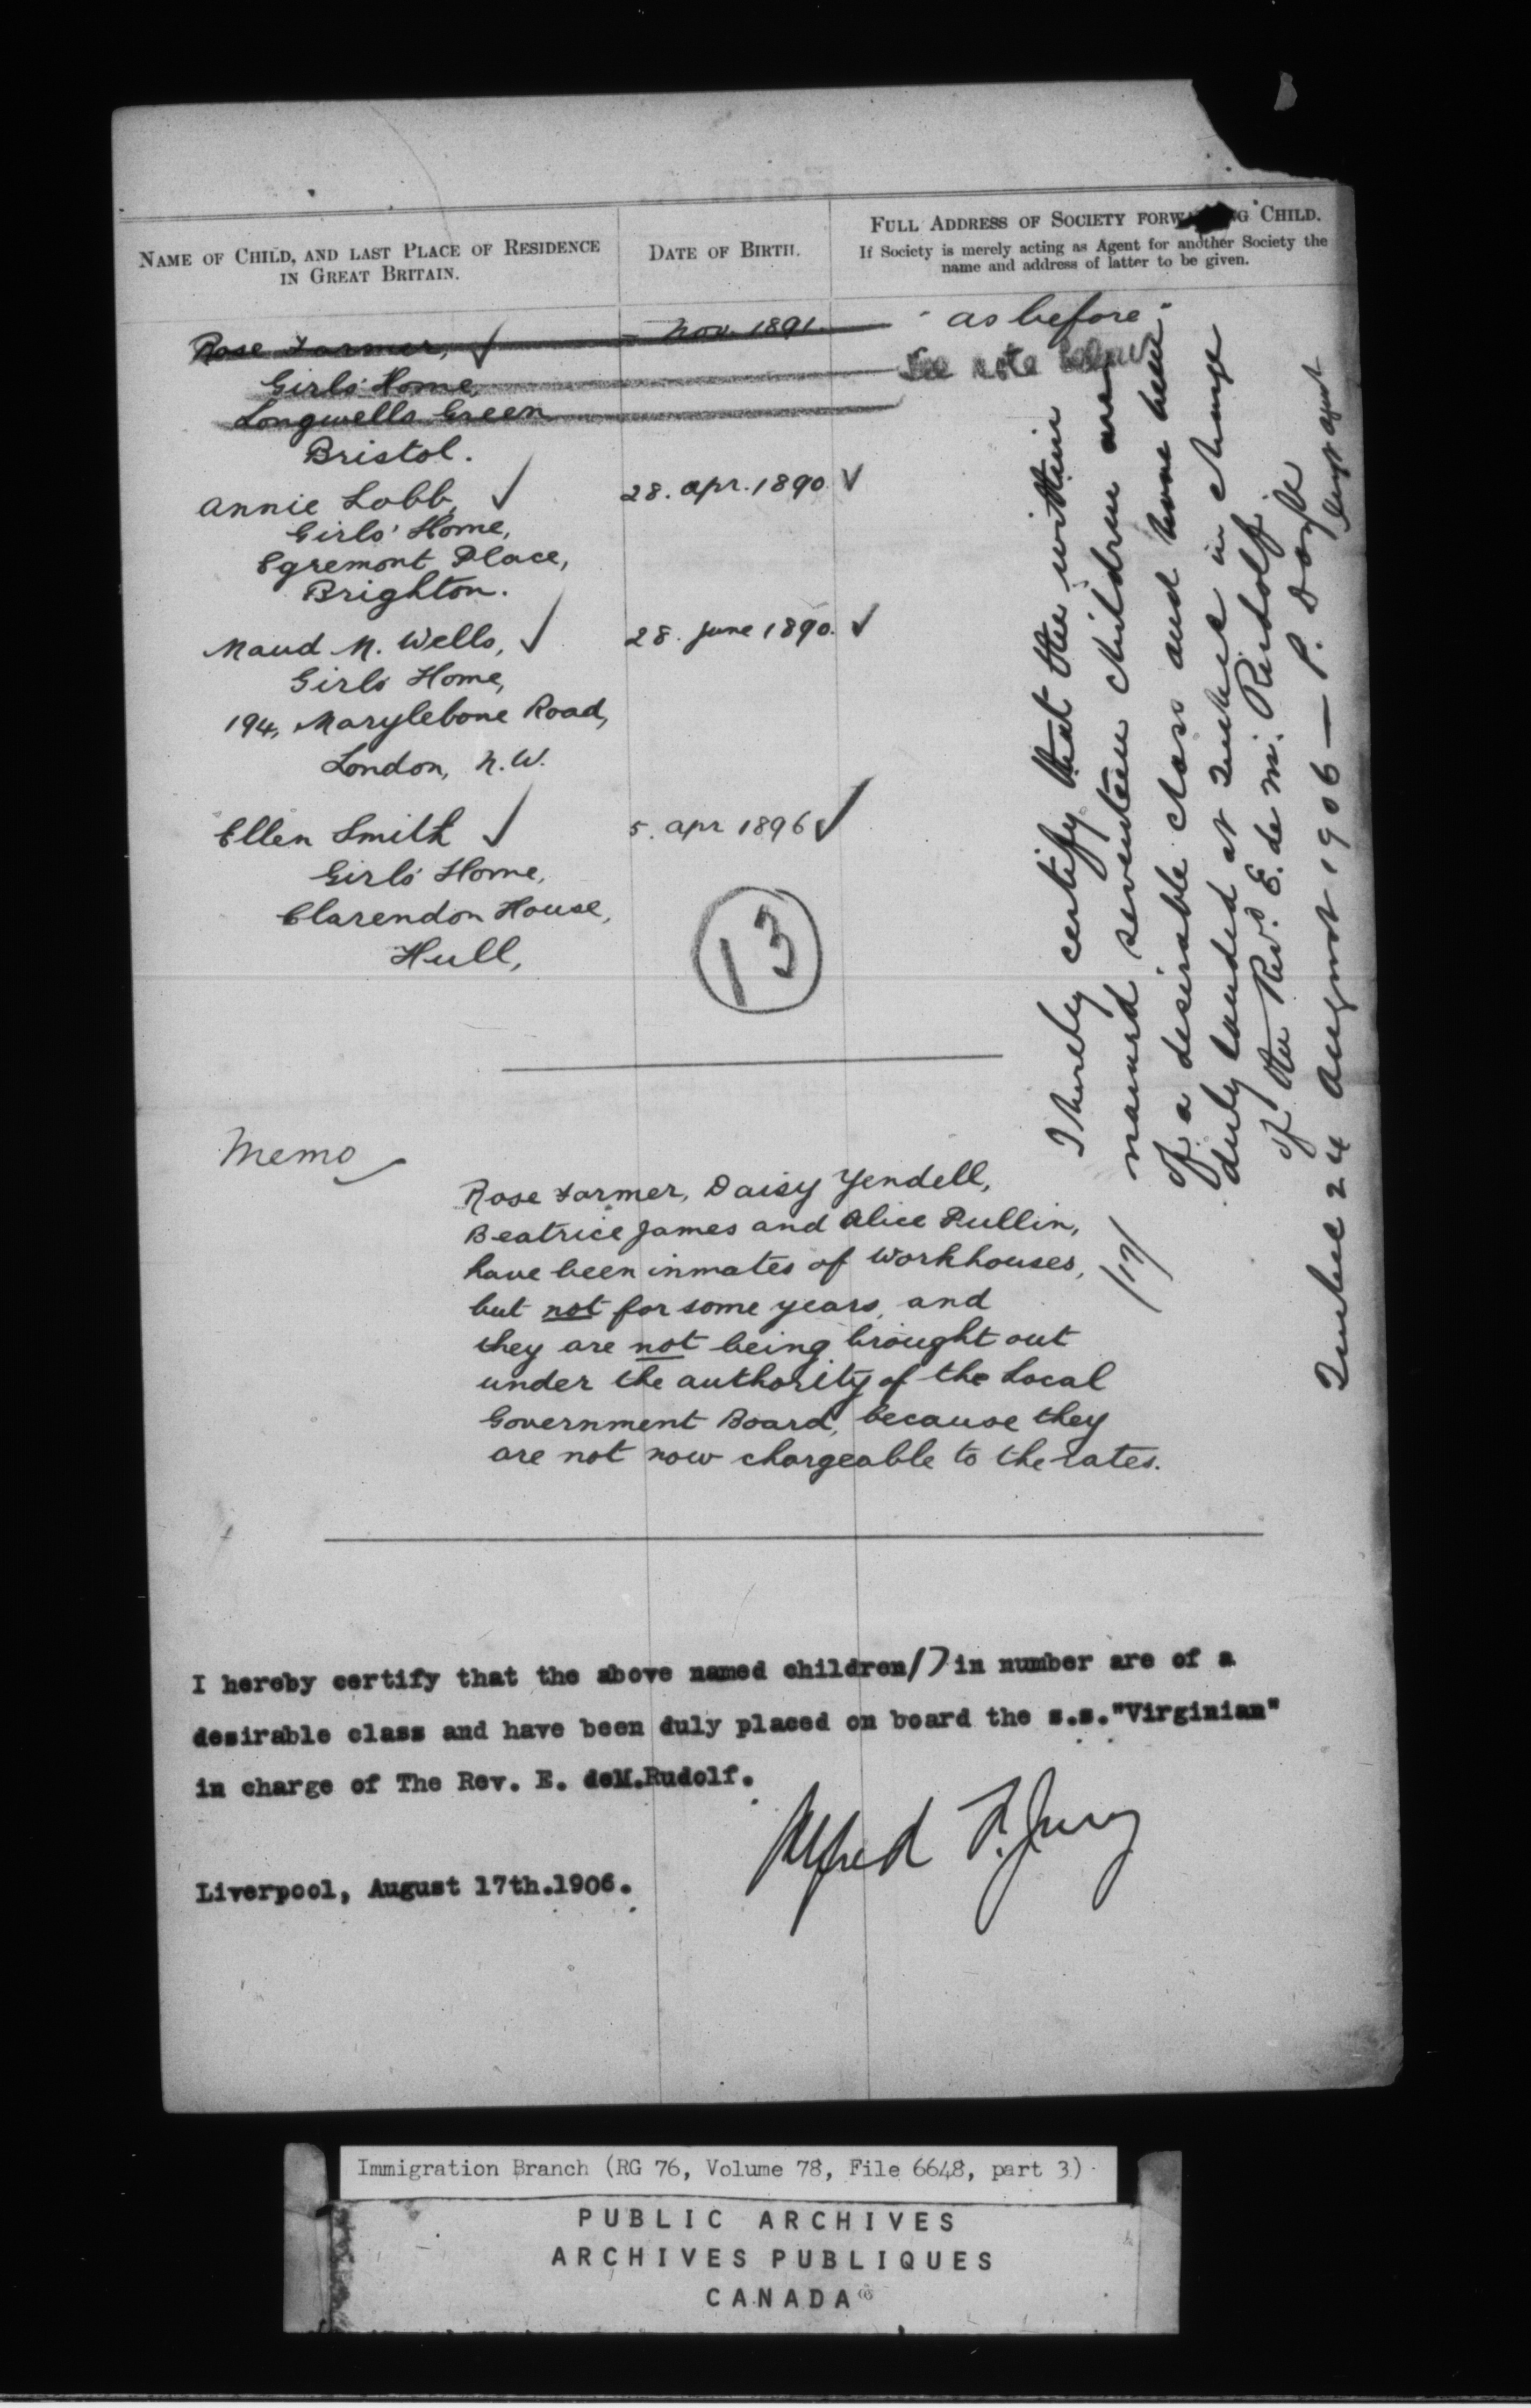 NAME OF CHILD, AND LAST PLACE OF RESIDENCE
IN GREAT BRITAIN.
DATE OF BIRTH.
FULL ADDRESS OF SOCIETY FORWARDING CHILD.
If Society is merely acting as Agent for another Society the
name and address of latter to be given.
Rose Farmer, ✓ Nov. 1891. "as before"
See note below
Girls' Home,
Longwells Green
Bristol.
Annie Lobb, ✓ 28. Apr. 1890 ✓
Girls' Home,
Egremont Place,
Brighton.
Maud M. Wells, ✓ 28. June 1890. ✓
Girls Home,
194, Marylebone Road,
London, N.W.
Ellen Smith ✓ 5. Apr 1896 ✓
Girls' Home,
Clarendon House,
Hull,
13
I hereby certify that the within
named seventeen children are
of a desirable class and have been
duly landed at Quebec in charge
of the Revd. E. de M. Rudolf.
Quebec 24 August 1906 — P. Doyle
agent
/17/
Memo
Rose Farmer, Daisy Yendell,
Beatrice James and Alice Pullin,
have been inmates of Workhouses,
but not for some years, and
they are not being brought out
under the authority of the Local
Government Board, because they
are not now chargeable to the rates.
I hereby certify that the above named children 17 in number are of a
desirable class and have been duly placed on board the s.s."Virginian"
in charge of The Rev. E. deM.Rudolf.
Alfred F. Jury
Liverpool, August 17th.1906.
Immigration Branch (RG 76, Volume 78, File 6648, part 3)
PUBLIC ARCHIVES
ARCHIVES PUBLIQUES
CANADA